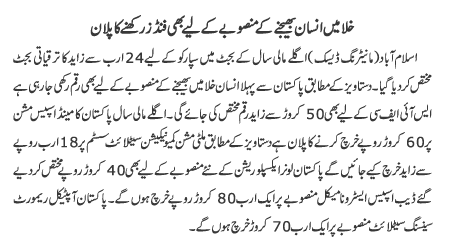 خلا میں انسان بھیجنے کے منصوبے کے لیے بھی فنڈز رکھنے کا پلان
اسلام آباد (مانیٹرنگ ڈیسک) اگلے مالی سال کے بجٹ میں سپارکو کے لیے 24 ارب سے زاید کا ترقیاتی بجٹ
مختص کر دیا گیا۔ دستاویز کے مطابق پاکستان سے پہلا انسان خلا میں بھیجنے کے منصوبے کے لیے بھی رقم رکھی جا رہی ہے
ایس آئی ایف سی کے لیے بھی 50 کروڑ سے زاید رقم مختص کی جائے گی۔ اگلے مالی سال پاکستان کا مینڈ اسپیس مشن
پر 60 کروڑ روپے خرچ کرنے کا پلان ہے دستاویز کے مطابق ملٹی مشن کمیونیکیشن سیٹلائٹ سسٹم پر 18 ارب روپے
سے زاید خرچ کیے جائیں گے پاکستان لونر ایکسپلوریشن کے نئے منصوبے کے لیے بھی 40 کروڑ روپے مختص کر دیے
گئے ڈیپ اسپیس ایسٹرونامیکل منصوبے پر ایک ارب 80 کروڑ روپے خرچ ہوں گے۔ پاکستان آپٹیکل ریموٹ
سینسنگ سیٹلائٹ منصوبے پر ایک ارب 70 کروڑ خرچ ہوں گے۔